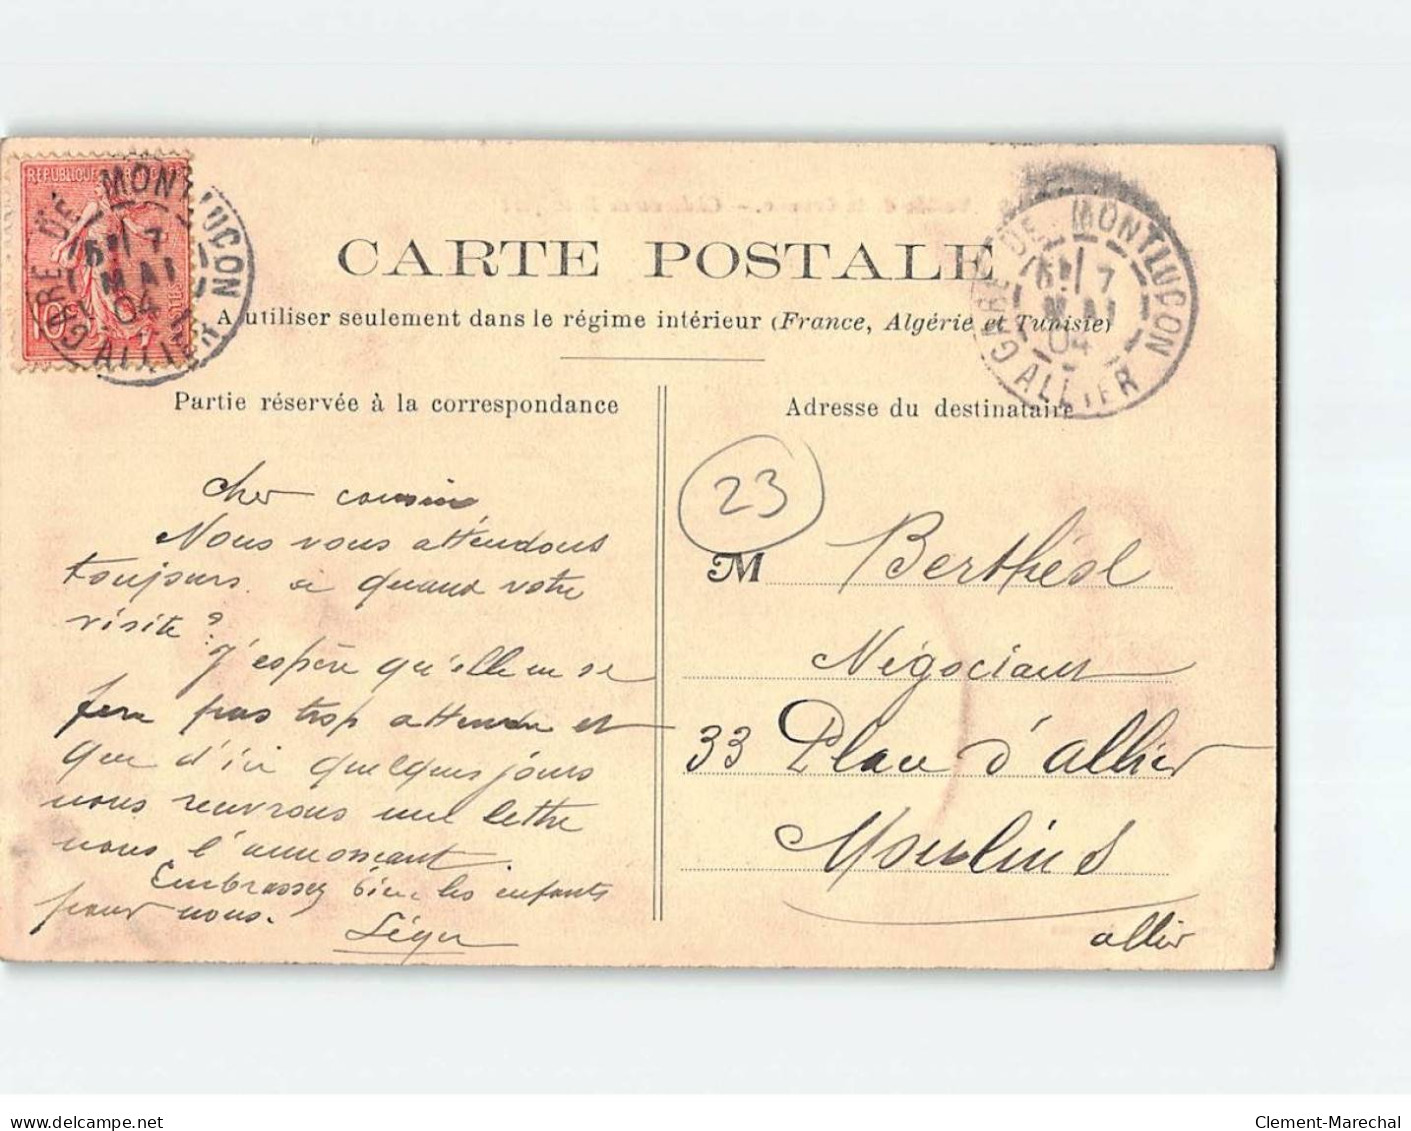 RÉPUBLIQUE FRANÇAISE
10
POSTES
GARE DE MONTLUÇON
7
MAI
04
ALLIER
GARE DE MONTLUÇON
7
MAI
04
ALLIER
CARTE POSTALE
A utiliser seulement dans le régime intérieur (France, Algérie et Tunisie)
Partie réservée à la correspondance
Cher cousin
Nous vous attendons
toujours. à quand votre
visite ?
J'espère qu'elle ne se
fera pas trop attendre et
que d'ici quelques jours
nous recevrons une lettre
nous l'annoncant.
Embrassez bien les enfants
pour nous.
Léger
Adresse du destinataire
23
M Berthésl
Négociant
33 Place d'allier
Moulins
allier
delcampe.net
Clement-Marechal